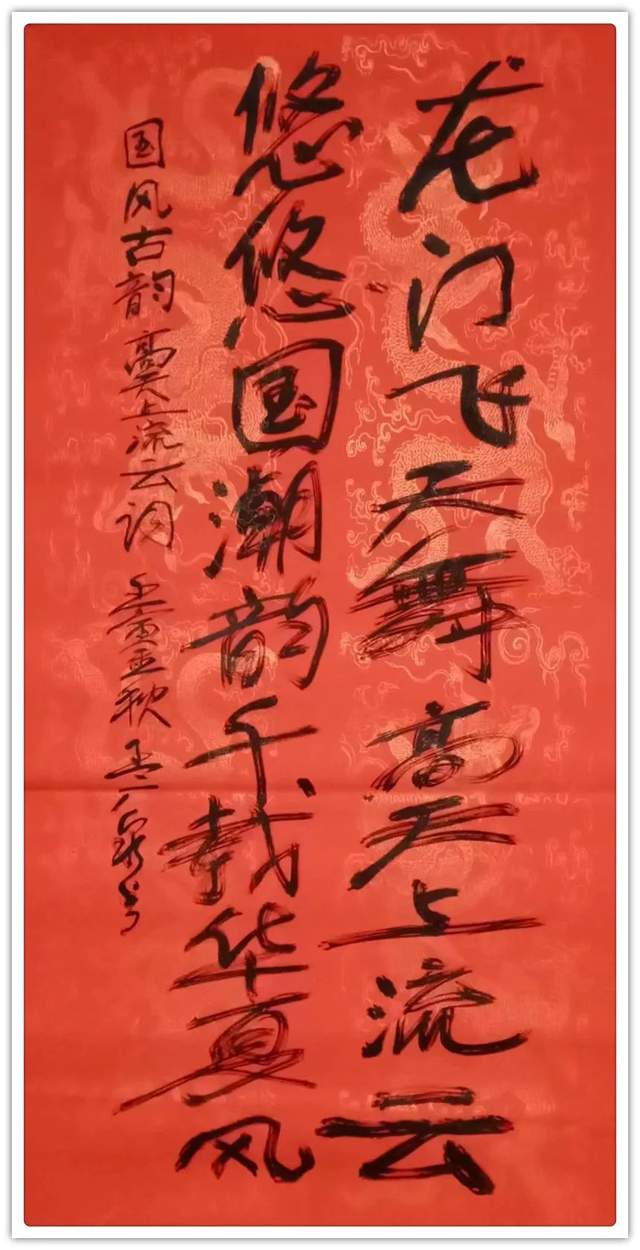 龙门飞天舞高天上流云
悠悠国潮韵千载华夏风
国风古韵 高天上流云词 秋 书